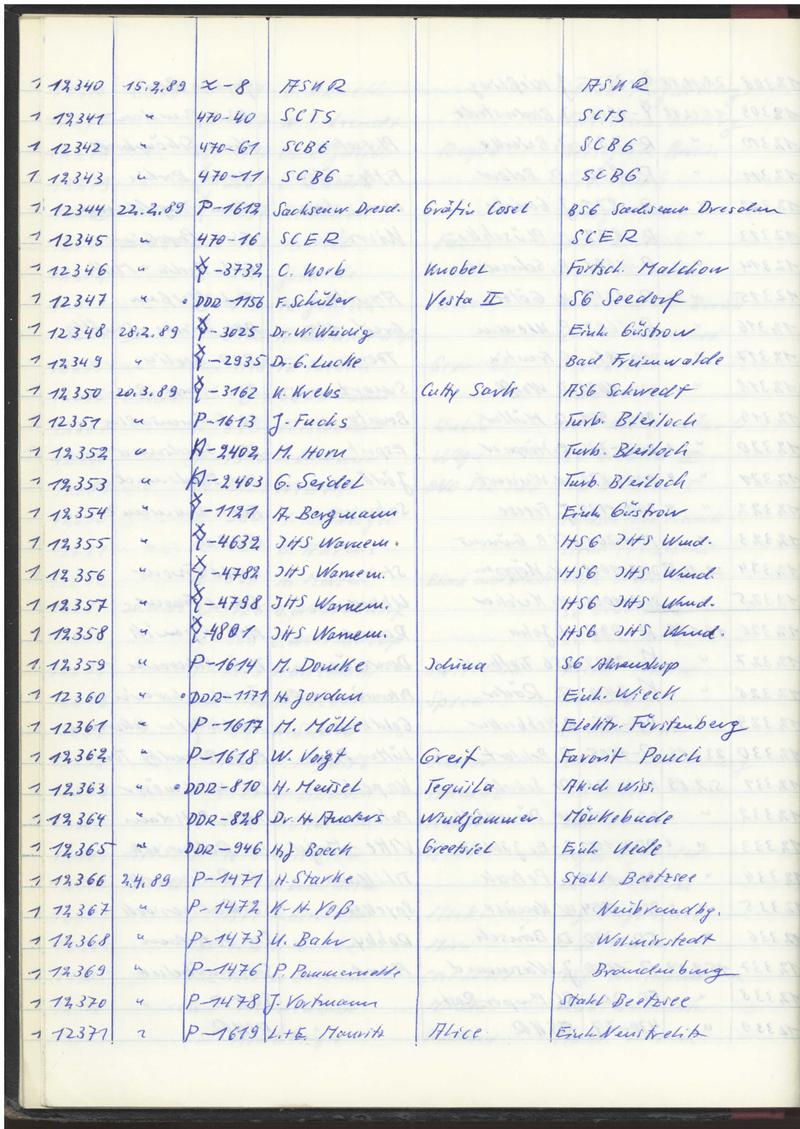 1 12340 15.2.89 x-8 ASKR ASKR
1 12341 " 470-40 SCTS SCTS
1 12342 " 470-61 SCBG SCBG
1 12343 " 470-11 SCBG SCBG
1 12344 22.2.89 P-1612 Sachsenw. Dresd. Gräfin Cosel BSG Sachsenw Dresden
1 12345 " 470-16 SCER SCER
1 12346 " -3732 C. Korb Knobel Fortsch. Malchow
1 12347 " DDR-1156 F. Schüler Vesta II SG Seedorf
1 12348 28.2.89 -3025 Dr. W. Weidig Einh. Güstrow
1 12349 " -2935 Dr. G. Lucke Bad Freienwalde
1 12350 20.3.89 -3162 K. Krebs Cutty Sark ASG Schwedt
1 12351 " P-1613 J. Fuchs Turb. Bleiloch
1 12352 " A-2402 M. Horn Turb. Bleiloch
1 12353 " A-2403 G. Seidel Turb. Bleiloch
1 12354 " -1121 A. Bergmann Einh. Güstrow
1 12355 " -4632 IHS Warnem. HSG IHS Wmd.
1 12356 " -4782 IHS Warnem. HSG IHS Wmd.
1 12357 " -4798 IHS Warnem. HSG IHS Wmd.
1 12358 " -4801 IHS Warnem. HSG IHS Wmd.
1 12359 " P-1614 M. Domke Iduna SG Ahrenshop
1 12360 " DDR-1171 H. Jordan Einh. Wieck
1 12361 " P-1617 M. Mölle Elektr. Fürstenberg
1 12362 " P-1618 W. Voigt Greif Favorit Pouch
1 12363 " DDR-810 H. Meusel Tequila Ak. d. Wiss.
1 12364 " DDR-828 Dr. H. Anders Windjammer Mönkebude
1 12365 " DDR-946 H.J. Boeck Greetsiel Einh. Uede
1 12366 2.4.89 P-1471 H. Starke Stahl Beetzsee
1 12367 " P-1472 K-H. Voß Neubrandbg.
1 12368 " P-1473 U. Bahr Wolmirstedt
1 12369 " P-1476 P. Pommernelle Brandenburg
1 12370 " P-1478 J. Vortmann Stahl Beetzsee
1 12371 " P-1619 L.+E. Mauritz Alice Einh. Neustrelitz